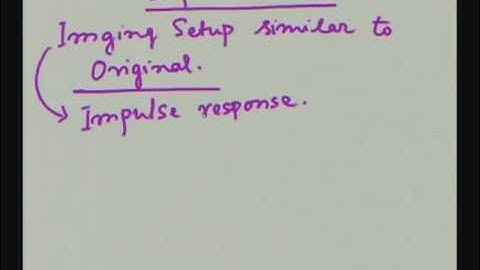 Imging Setup similar to
Original.
Impulse response.